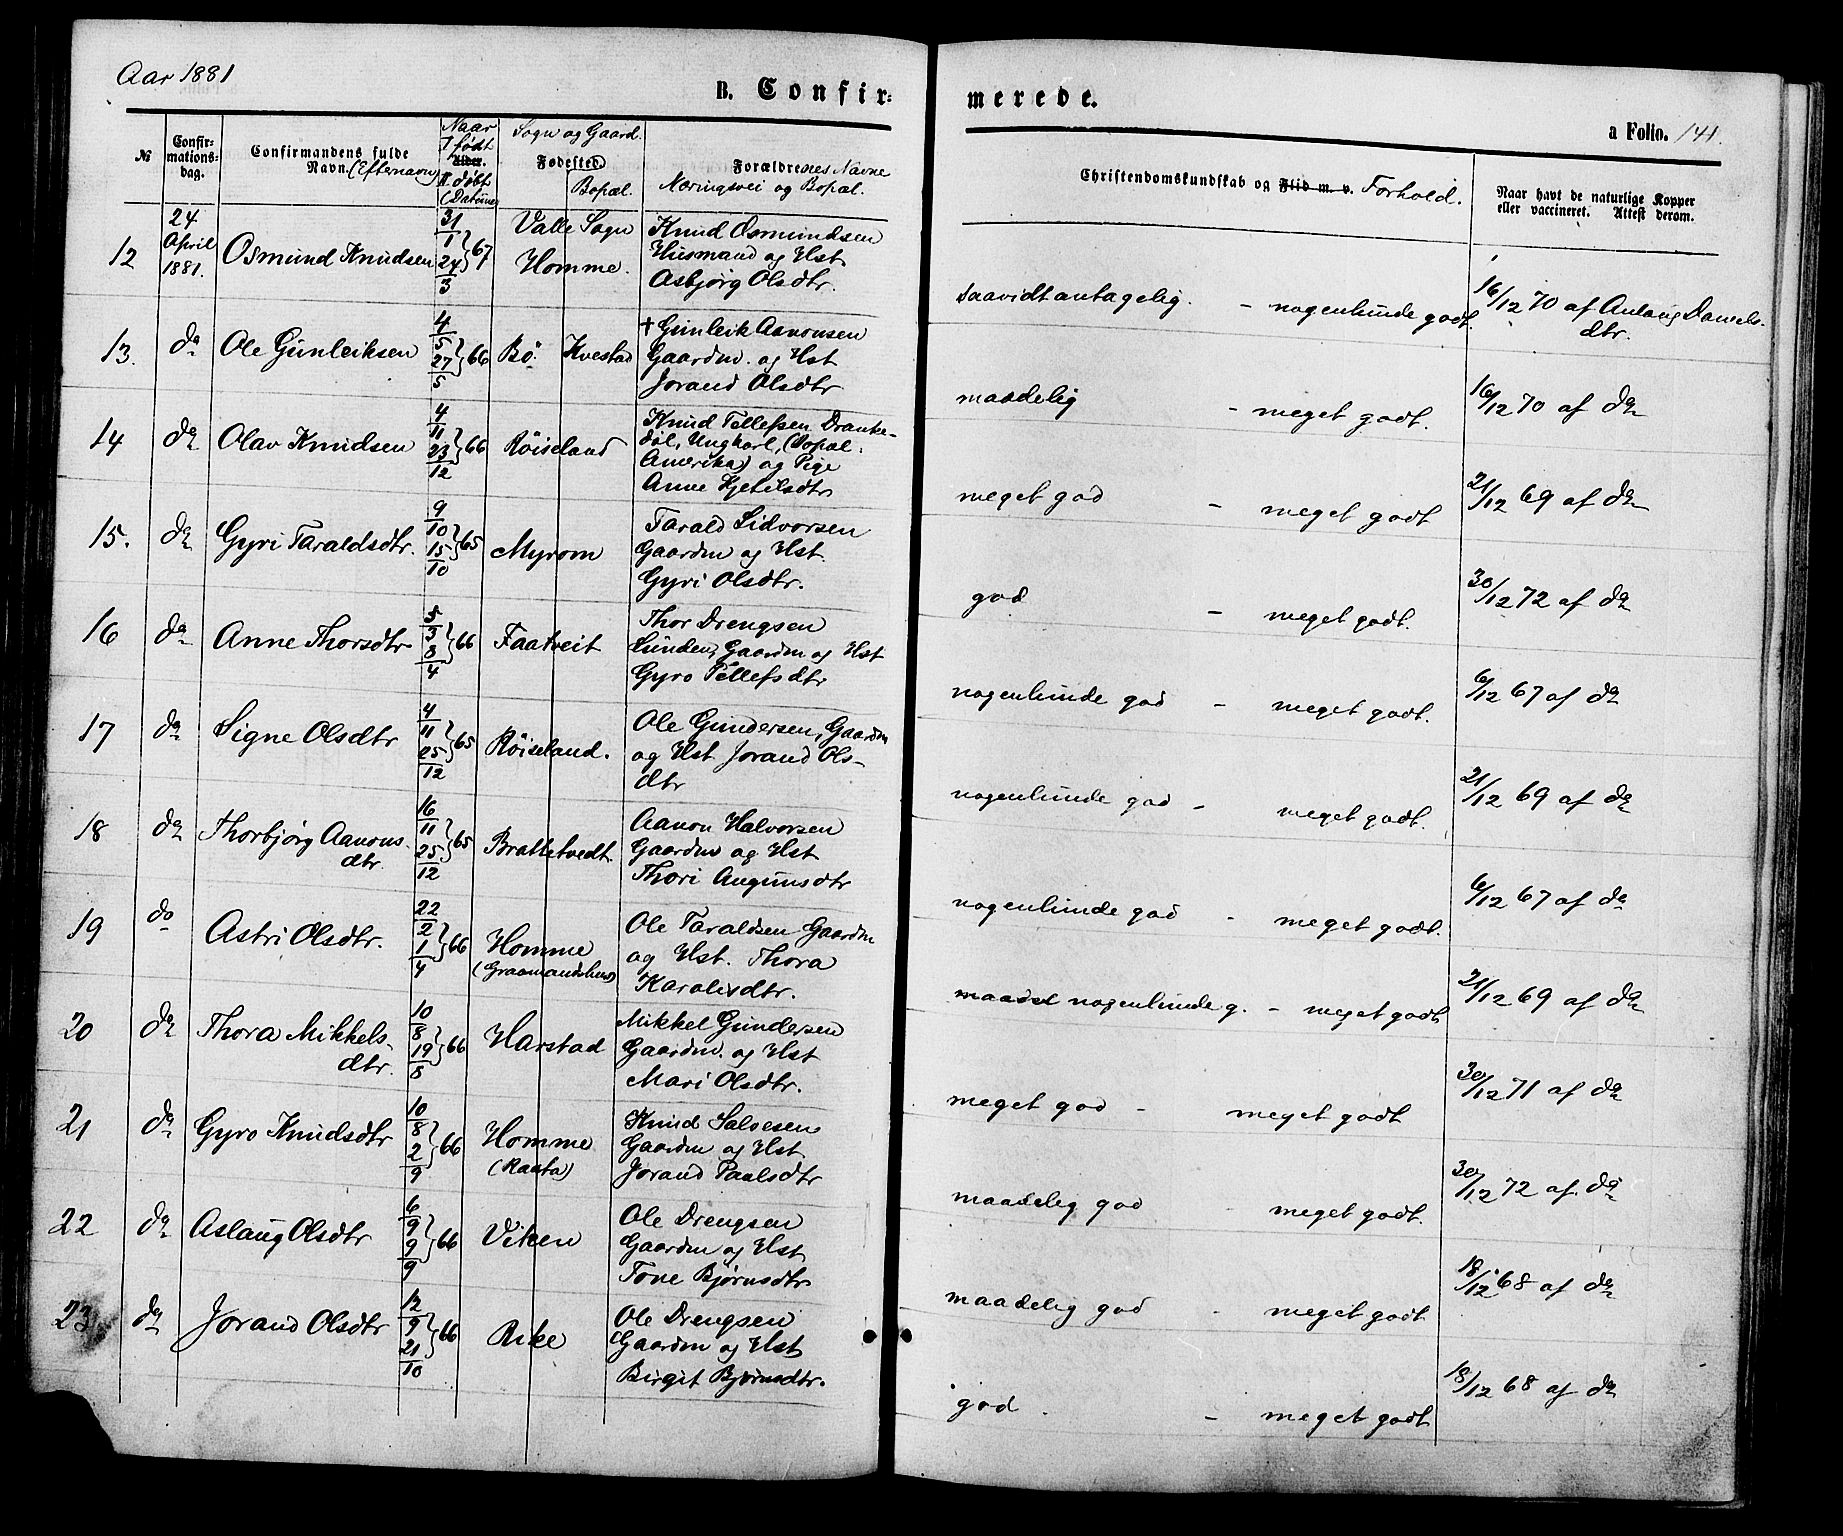 Aar 1881
B. Confir-
merede.
a Folio. 141.
№
Confir-
mations-
dag.
Confirmandens fulde
Navn. (Efternavn)
Naar
I født
Alder.
II døbt
(Datum)
Sogn og Gaard.
Fødested.
Bopæl.
Forældrenes Navne
Næringsvei og Bopæl.
Christendomskundskab og Flid m. v. Forhold.
Naar havt de naturlige Kopper
eller vaccineret. Attest derom.
12
24
April
1881.
Osmund Knudsen
31/1 24/3 } 67
Valle Sogn
Homme.
Knud Osmundsen
Husmand og Hst
Asbjørg Olsdtr.
saavidt antagelig. - nogenlunde godt.
16/12 70 af Aslaug Daniels-
dtr.
13.
do
Ole Gunleiksen
4/5 27/5 } 66
Bø. Kvestad
† Gunleik Aanonsen
Gaardm. og Hst
Jorand Olsdtr
maadelig - meget godt.
16/12 70 af do
14
do
Olav Knudsen
4/11 23/12 } 66
Røiseland
Knud Tellefsen Dranke-
døl, Ungkarl, (Bopæl.
Amerika) og Pige
Anne Kjetilsdtr
meget god - meget godt
21/12 69 af do
15.
do
Gyri Taraldsdtr.
9/10 15/10 } 65
Myrom
Tarald Sidvorsen
Gaardm og Hst.
Gyri Olsdtr.
god - meget godt.
30/12 72 af do
16
do
Anne Thorsdtr
5/3 8/4 } 66
Faatveit
Thor Drengsen
Lunden, Gaardm og Hst
Gyro Tellefsdtr
nogenlunde god - meget godt.
6/12 67 af do
17
do
Signe Olsdtr
4/11 25/12 } 65
Røiseland.
Ole Gundersen, Gaardm
og Hst Jorand Ols-
dtr
nogenlunde god - meget godt.
21/12 69 af do
18
do
Thorbjørg Aanons-
dtr.
16/11 25/12 } 65
Brattetvedt.
Aanon Halvorsen
Gaardm og Hst
Thori Augunsdtr
nogenlunde god - meget godt.
6/12 67 af do
19
do
Astri Olsdtr.
22/2 1/4 } 66
Homme
(Graamandshus)
Ole Taraldsen Gaardm
og Hst. Thora
Karolisdtr.
nogenlunde g. - meget godt
21/12 69 af do
20
do
Thora Mikkels-
dtr.
10/8 19/8 } 66
Harstad
Mikkel Gundersen
Gaardm. og Hst
Mari Olsdtr.
meget god - meget godt
30/12 71 af do
21
do
Gyro Knudsdtr
10/8 2/9 } 66
Homme
(Raata)
Knud Salvesen
Gaardm og Hst
Jorand Paalsdtr
maadelig god - meget godt.
30/12 72 af. do
22
do
Aslaug Olsdtr
6/9 9/9 } 66
Viken
Ole Drengsen
Gaardm og Hst
Tone Bjørnsdtr
maadelig god - meget godt
18/12 68 af do
23
do
Jorand Olsdtr
12/9 21/10 } 66
Rike
Ole Drengsen
Gaardm og Hst
Birgit Bjørnsdtr.
god. - meget godt
18/12 68 af do